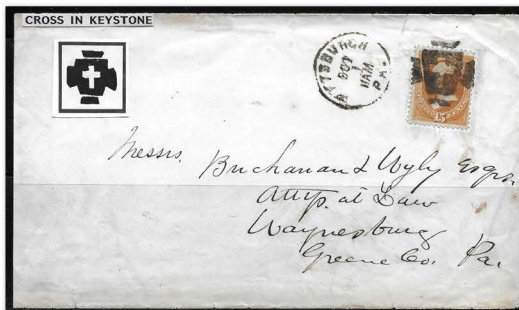 CROSS IN KEYSTONE
PITTSBURGH
OCT
7
11AM
PA.
15
Messrs. Buchanan & Wyly Esqrs.
Attys. at Law
Waynesburg
Greene Co. Pa.